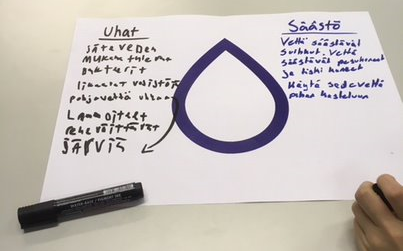 Uhat
jäteveden
mukana tulevat
bakteerit
pohjavettä uhkaa
Lannoiteet
rehevöittävät
JÄRVIÄ
Säästö
Vettä säästävät
suihkut. Vettä
säästävät pesukoneet
ja tiski koneet
Käytä sadevettä
pihan kasteluun